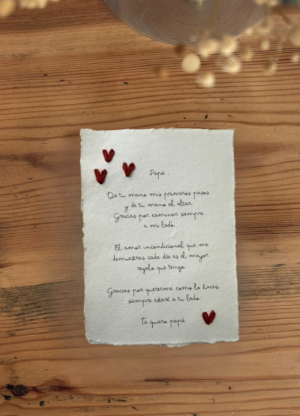 Papá,
De tu mano mis primeros pasos
y de tu mano al altar.
Gracias por caminar siempre
a mi lado.
El amor incondicional que me
demuestras cada día es el mayor
regalo que tengo.
Gracias por quererme como lo haces
siempre estaré a tu lado.
Te quiero papá